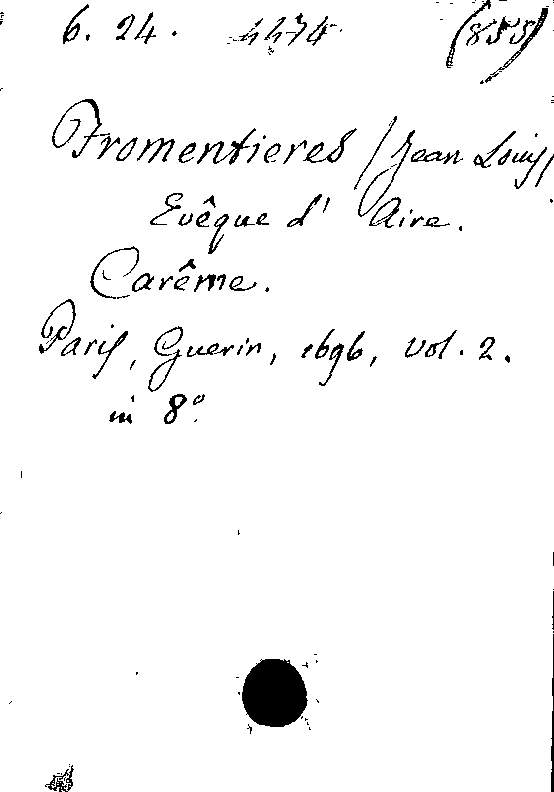 6. 24. 4474 (855)
Fromentieres / Jean Louis /
Evêque d' Aire.
Carême.
Paris, Guerin, 1696, vol. 2.
in 8º